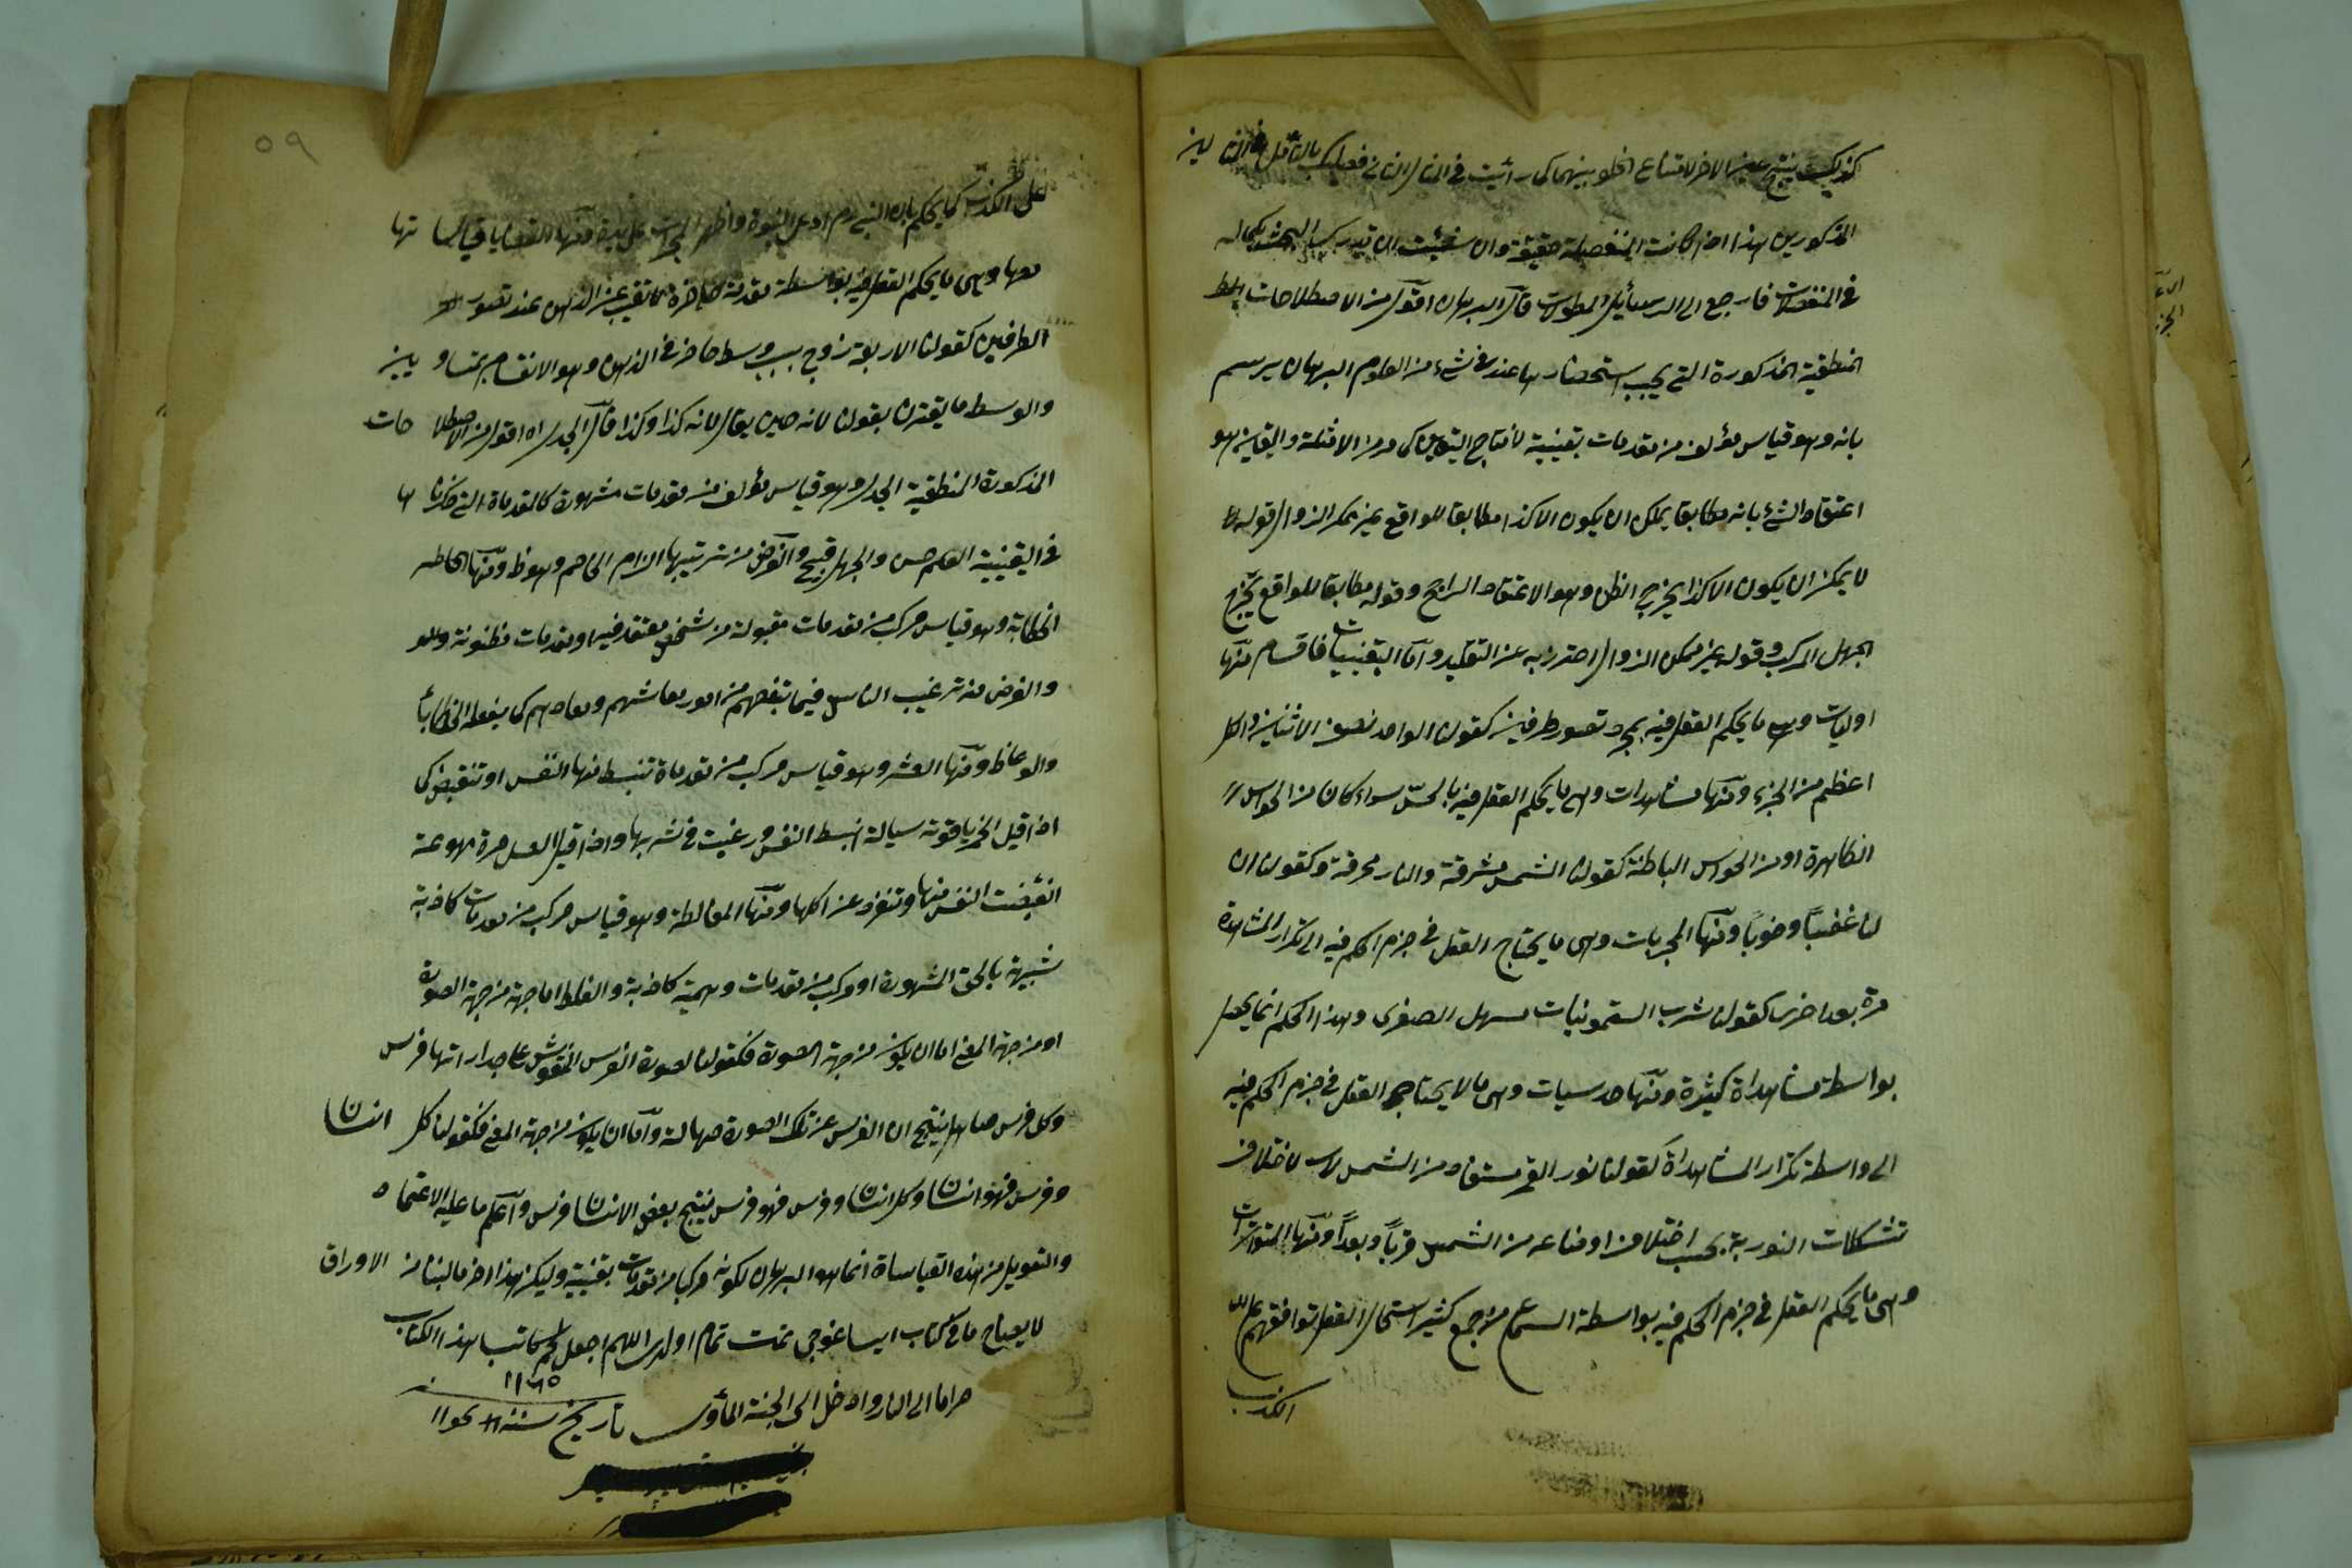 كذلك ينتج عين الاخر لامتناع الخلو بينهما كما رأيت في المثال الثاني فعليك بالتأمل في المثالين
المذكورين هذا اذا كانت المنفصلة حقيقة وان شئت ان تدرك البحث بكماله
في المنفصلات فارجع الى الرسائل المطولات قال البرهان اقول من الاصطلاحات
المنطقية المذكورة التي يجب استحضارها عند في شيء من العلوم البرهان يرسم
بانه وهو قياس مؤلف من مقدمات يقينية لانتاج اليقين كما مر من الامثلة واليقين هو
اعتقاد الشيء بانه مطابقا يمكن ان يكون الا كذا مطابقا للواقع غير ممكن الزوال قوله
لا يمكن ان يكون الا كذا يخرج الظن وهو الاعتقاد الراجح وقوله مطابقا للواقع يخرج
الجهل المركب وقوله غير ممكن الزوال احترز به عن التقليد واما اليقينيات فاقسام منها
اوليات وهي ما يحكم العقل فيه بمجرد تصور طرفين كقولنا الواحد نصف الاثنين والكل
اعظم من الجزء ومنها مشاهدات وهي ما يحكم العقل فيه بالحس سواء كان من الحواس
الظاهرة او من الحواس الباطنة كقولنا الشمس مشرقة والنار محرقة وكقولنا ان
لنا غضبا وخوبا ومنها المجربات وهي ما يحتاج العقل في جزم الحكم فيه الى تكرار المشاهدة
مرة بعد اخرى كقولنا شرب السقمونيات مسهل الصفرى وهذا الحكم انما يحصل
بواسطة مشاهداة كثيرة ومنها حدسيات وهي ما لا يحتاج العقل في جزم الحكم فيه
الى واسطة تكرار المشاهداة كقولنا نور القمر مستفاد من الشمس لاختلاف
تشكلات النورية بحسب اختلاف اوضاعه من الشمس قربا وبعدا ومنها المتوترات
وهي ما يحكم العقل في جزم الحكم فيه بواسطة السماع من جمع كثير استحال العقل توافقهم على
الكذب
٥٩
على الكذب كما يحكم بان النبي ادعى النبوة واظهر المعجزات على يده ومنها القضايا قياساتها
معها وهي ما يحكم العقل فيه بواسطة مقدمة حاضرة لا تغيب عن الذهن عند تصور
الطرفين كقولنا الاربعة زوج بسبب وسط حاضر في الذهن وهو الانقسام بمتساويين
والوسط ما يقترن بقولنا لانه حين يقال لانه كذا وكذا قال الجدل اه اقول من الاصطلاحات
المذكورة المنطقية الجدل وهو قياس مؤلف من مقدمات مشهورة كالمقدماة التي ذكرناها
في اليقينية العلم حسن والجهل قبيح والغرض من ترتيبها الزام الخصم وهو ظ ومنها
الخطابة وهو قياس مركب من مقدمات مقبولة من شخص معتقد فيه او مقدمات مظنونة
والغرض منه ترغيب الناس فيما ينفعهم من امور معاشهم ومعادهم كما يفعله الخطاباء
والوعاظ ومنها الشعر وهو قياس مركب من مقدماة تنبسط منها النفس او تنقبض كما
اذا قيل الخمر ياقوتة سيالة انبسط النفس ورغبت في شربها واذا قيل العسل مرة مهوعة
انقبضت النفس منها وتنفرد عن اكلها ومنها المغالطة وهو قياس مركب من مقدمات كاذبة
شبيهة بالحق المشهورة او مركب من مقدمات وهمية كاذبة والغلط اما جهة من جهة الصورة
او من جهة المعنى اما ان يكون من جهة الصورة فكقولنا لصورة الفرس المنقوش على جدار انها فرس
وكل فرس صاهل ينتج ان الفرس عن تلك الصورة صهالة واما ان يكون من جهة المعنى فكقولنا كل انسان
وفرس فهو انسان وكل انسان وفرس فهو فرس ينتج بعض الانسان فرس واعلم ما عليه الاعتماد
والتعويل من هذه القياساة انما هو البرهان لكونه مركبا من مقدمات يقينية وليكن هذا اخر ما لبنا من الاوراق
لا يصاح ما في كتاب ايساغوجي تمت تمام اولدى اللهم اجعل لحم كاتب هذا الكتاب
حراما الى النار وادخل الى الجنة المأوى تاريخ سنة
١١٦٥